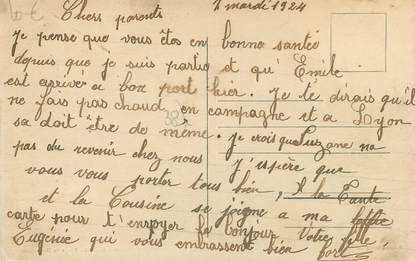 mardi 1924
Chers parents
je pense que vous êtes en bonne santé
depuis que je suis partie et qu'Emile
est arrivé a bon port hier. Je te dirais qu'il
ne fais pas chaud en campagne et a Lyon
sa doit être de même. Je crois que Suzane na
pas du revenir chez nous j'espère que
vous vous porter tous bien, A la Tante
et la Cousine se joigne a ma lettre
carte pour t'envoyer le bonjour Votre fille,
Eugénie qui vous embrassent bien fort